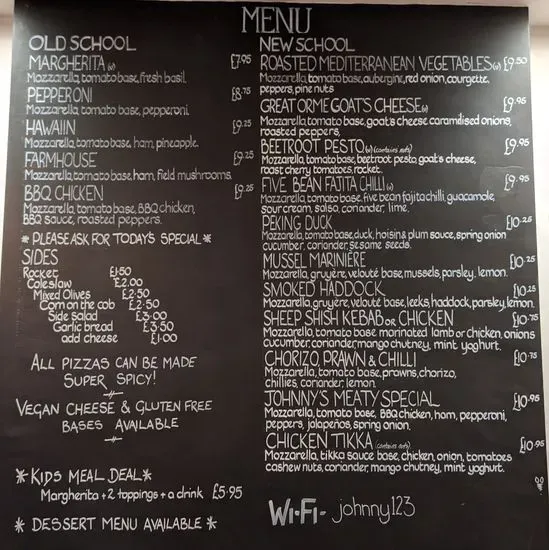 MENU
OLD SCHOOL
MARGHERITA (v) £7.95
Mozzarella, tomato base, fresh basil.
PEPPERONI £8.75
Mozzarella, tomato base, pepperoni.
HAWAIIN £9.25
Mozzarella, tomato base, ham, pineapple.
FARMHOUSE £9.25
Mozzarella, tomato base, ham, field mushrooms.
BBQ CHICKEN £9.25
Mozzarella, tomato base, BBQ chicken,
BBQ sauce, roasted peppers.
* PLEASE ASK FOR TODAY'S SPECIAL *
SIDES
Rocket £1.50
Coleslaw £2.00
Mixed Olives £2.50
Corn on the cob £2.50
Side Salad £3.00
Garlic bread £3.50
add cheese £1.00
ALL PIZZAS CAN BE MADE
SUPER SPICY!
VEGAN CHEESE & GLUTEN FREE
BASES AVAILABLE
*KIDS MEAL DEAL*
Margherita + 2 toppings + a drink £5.95
* DESSERT MENU AVAILABLE *
NEW SCHOOL
ROASTED MEDITERRANEAN VEGETABLES (v) £9.50
Mozzarella, tomato base, aubergine, red onion, courgette,
peppers, pine nuts
GREAT ORME GOAT'S CHEESE (v) £9.95
Mozzarella, tomato base, goat's cheese, caramilised onions,
roasted peppers,
BEETROOT PESTO (v) (contains nuts) £9.95
Mozzarella, tomato base, beetroot pesto, goat's cheese,
roast cherry tomatoes, rocket.
FIVE BEAN FAJITA CHILLI (v) £9.95
Mozzarella, tomato base, five bean fajita chilli, guacamole,
sour cream, salsa, coriander, lime.
PEKING DUCK £10.25
Mozzarella, tomato base, duck, hoisin & plum sauce, spring onion
cucumber, coriander, sesame seeds.
MUSSEL MARINIÈRE £10.25
Mozzarella, gruyère, velouté base, mussels, parsley, lemon.
SMOKED HADDOCK £10.25
Mozzarella, gruyère, velouté base, leeks, haddock, parsley, lemon
SHEEP SHISH KEBAB OR CHICKEN £10.75
Mozzarella, tomato base marinated lamb or chicken, onions
cucumber, coriander, mango chutney, mint yoghurt.
CHORIZO, PRAWN & CHILLI £10.75
Mozzarella, tomato base, prawns, chorizo,
chillies, coriander, lemon.
JOHNNY'S MEATY SPECIAL £10.95
Mozzarella, tomato base, BBQ chicken, ham, pepperoni,
peppers, jalapeños, spring onion.
CHICKEN TIKKA (contains nuts) £10.95
Mozzarella, tikka sauce base, chicken, onion, tomatoes
cashew nuts, coriander, mango chutney, mint yoghurt.
Wi-Fi- johnny123